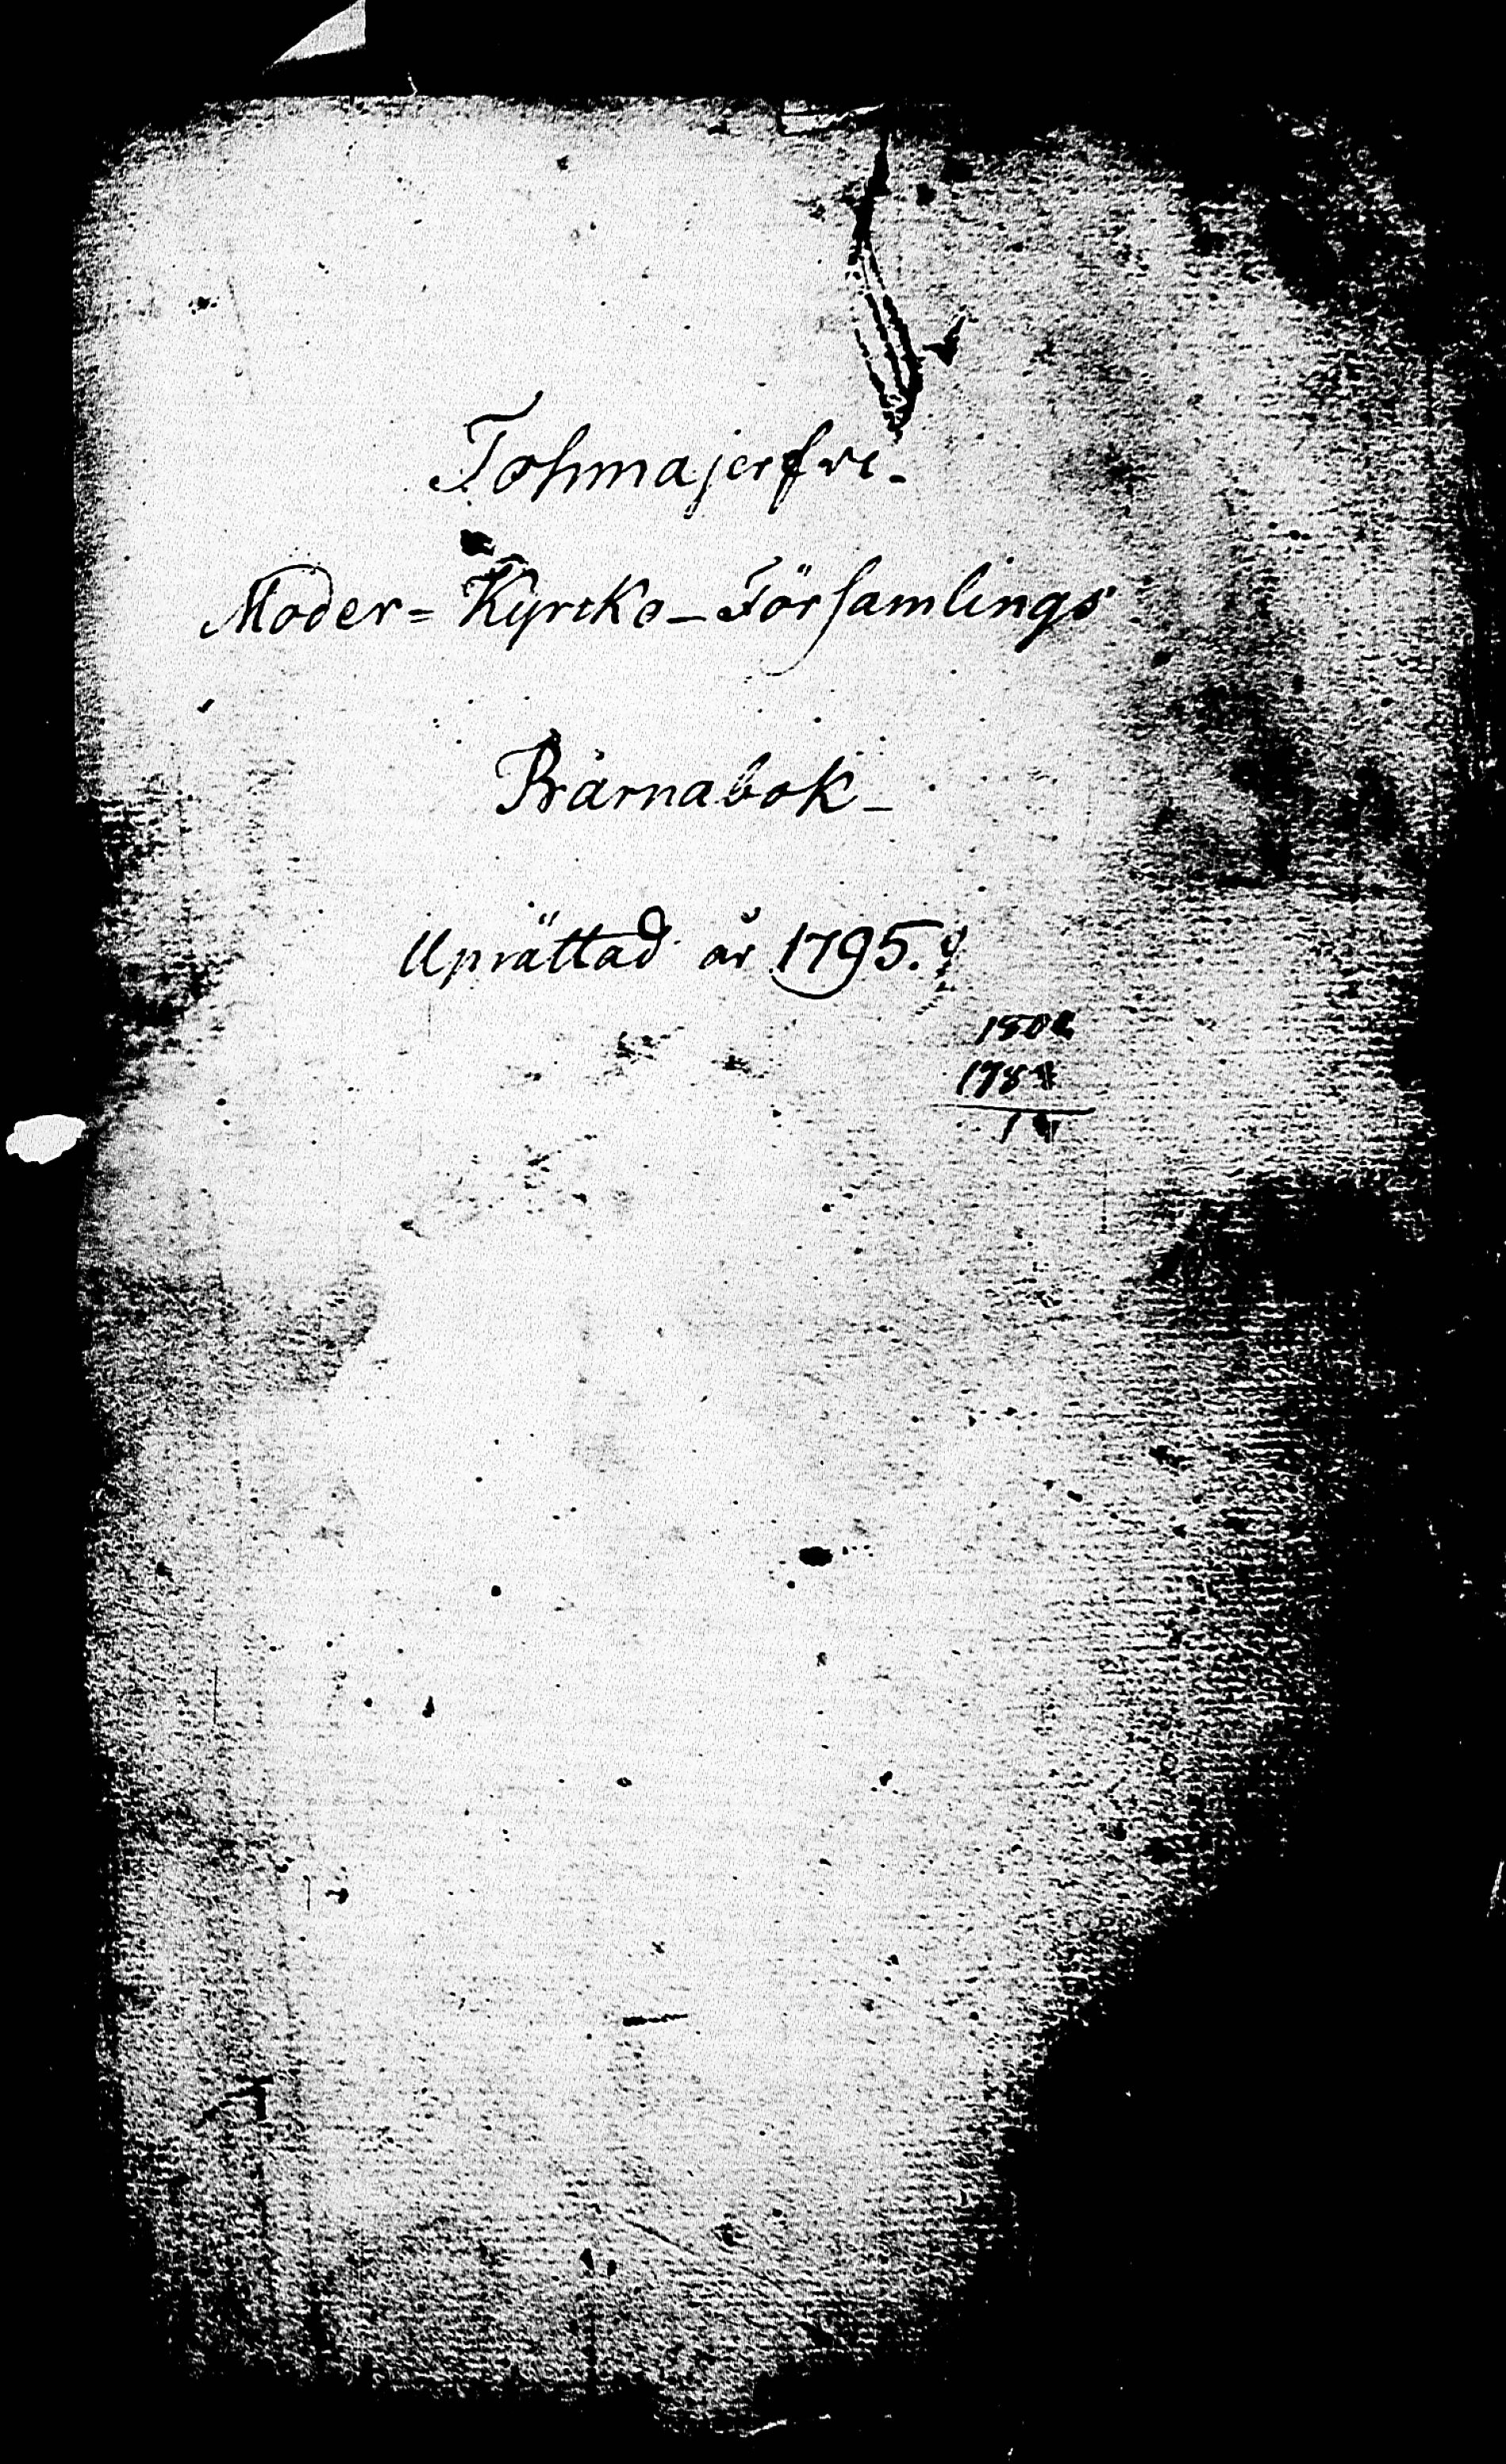 Tohmajerfvi.
Moder= Kyrcko-Församlings
Barnabok-
Uprättad år 1795.
1802